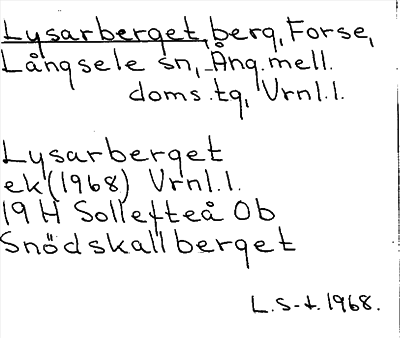 Lysarberget, berg, Forse,
Långsele sn, Ång.mell.
doms.tg, Vrnl.l.
Lysarberget
ek (1968) Vrnl.l.
19 H Sollefteå Ob
Snödskallberget
L.S-t. 1968.